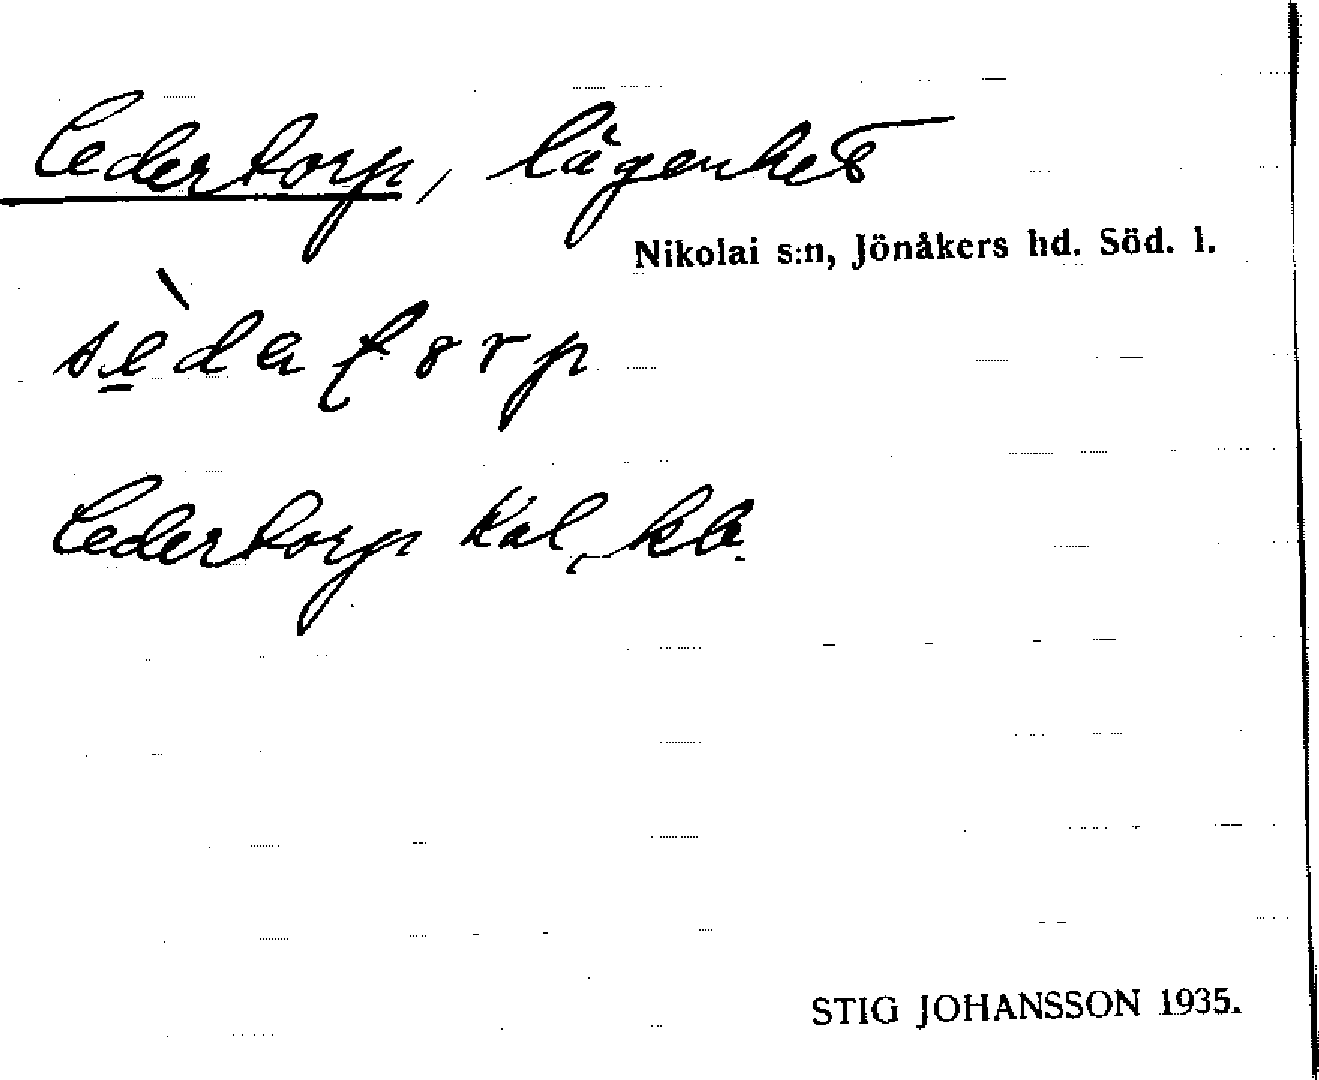 Cedertorp, lägenhet
Nikolai s:n, Jönåkers hd. Söd. l.
sèdatorp
Cedertorp Kal, kb.
STIG JOHANSSON 1935.